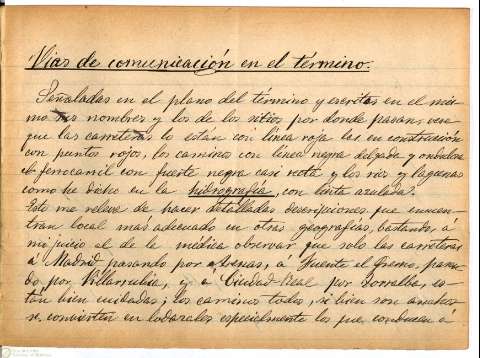 Vías de comunicación en el término.
Señaladas en el plano del término y escritos en el mis-
mo sus nombres y los de los sitios por donde pasan, vere
que las carreteras lo estan con línea roja las en construcción
con puntos rojos, los caminos con línea negra delgada y ondulosa
el ferrocarril con fuerte negra casi recta y los rios y lagunas
como he dicho en la hidrografía, con tinta azulada.
Esto me releve de hacer detalladas descripciones que encuen-
tran local mas adecuado en otras geografías, bastando, á
mi juicio al de la médica observar que solo las carreteras
á Madrid pasando por Arenas, á Fuente el Fresno, pasan-
do por Villarrubia, y á Ciudad-Real por Torralba, es-
tán bien cuidadas; los caminos todos, si bien son anchos
se convierten en lodazales especialmente los que conducen á